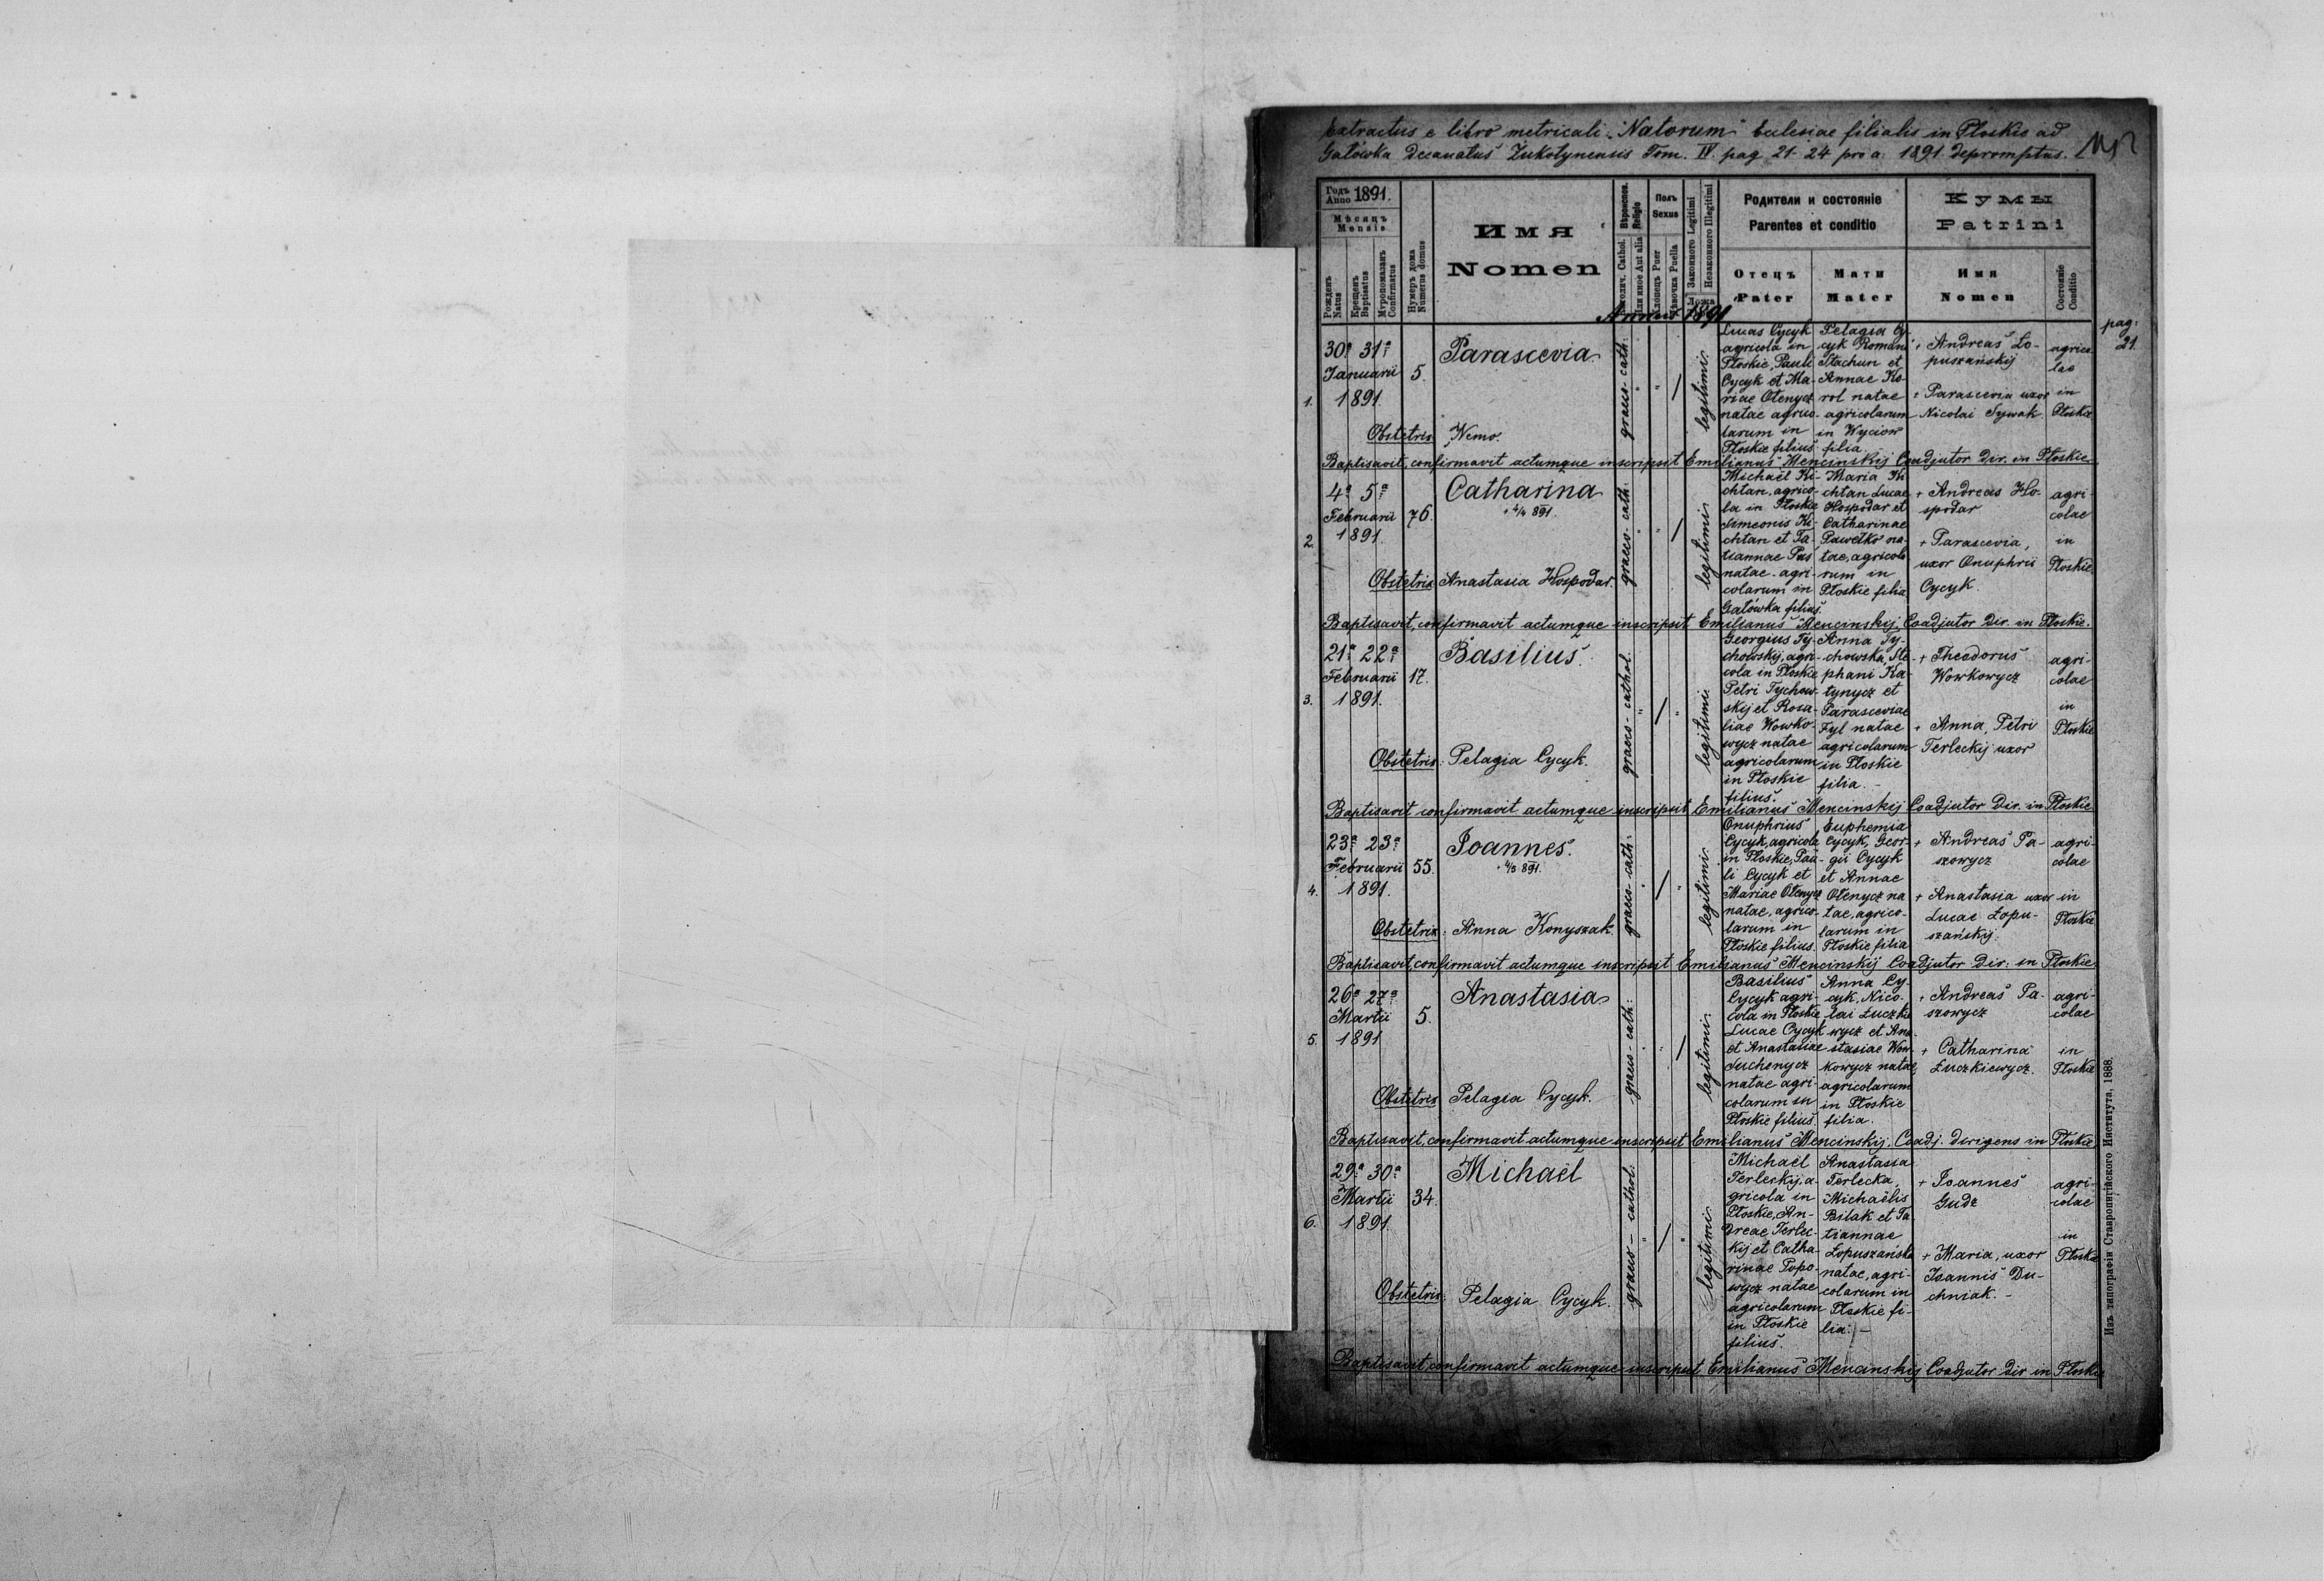 Extractus e libro metricali "Natorum" Ecclesiae filialis in Płoskie ad
Gałówka Decanatus Żukotynensis Tom. IV. pag. 21-24 pro a. 1891 depromptus.
Годъ Anno 1891.
Мѣсяцъ Mensis
Рожденъ Natus
Крещенъ Baptisatus
Муропомазанъ Confirmatus
Нумеръ дома Numerus domus
Имя
Nomen
Вѣроиспов. Religio
Католич. Cathol.
или иное Aut alia
Полъ
Sexus
Хлопецъ Puer
Дѣвочка Puella
Законного Legitimi
Незаконного Illegitimi
Ложа
Родители и состояніе
Parentes et conditio
Отецъ
Pater
Мати
Mater
Кумы
Patrini
Имя
Nomen
Состояніе
Conditio
Annus 1891
pag:
21.
1.
30ª 31ª
Januarii
1891.
5.
Parascevia
Obstetrix Nemo.
graeco-cath.
legitimi.
Lucas Cycyk
agricola in
Płoskie, Pauli
Cycyk et Ma-
riae Ołenycz
natae agrico-
larum in
Płoskie filius.
Pelagia Cy-
cyk Romani
Stachun et
Annae Ko-
rol natae
agricolarum
in Wyciow
filia
+ Andreas Ło-
puszańskij
+ Parascevia uxor
Nicolai Sywak.
agrico-
lae
in
Płoskie
Baptisavit, confirmavit actumque inscripsit Emilianus Mencinskij Coadjutor Dir. in Płoskie
2.
4ª 5ª
Februarii
1891.
76.
Catharina
+ 4/4 891.
Obstetrix Anastasia Hospodar.
graeco-cath.
legitimi.
Michaël Ki-
chtan, agrico-
la in Płoskie
Simeonis Ki-
chtan et Ta-
tiannae Pas
natae - agri-
colarum in
Gałówka filius.
Maria Ki-
chtan Lucae
Hospodar et
Catharinae
Pawełko na-
tae, agricola
rum in
Płoskie filia
+ Andreas Ho-
spodar
+ Parascevia,
uxor Onuphrii
Cycyk.
agri-
colae
in
Płoskie.
Baptisavit, confirmavit actumque inscripsit Emilianus Mencinskij, Coadjutor Dir. in Płoskie.
3.
21ª 22ª
Februarii
1891.
17.
Basilius.
Obstetrix: Pelagia Cycyk.
graeco-cathol.
legitimi.
Georgius Ty-
chowskij, agri-
cola in Płoskie
Petri Tychow-
skij et Rosa-
liae Wowko-
wycz natae
agricolarum
in Płoskie
filius.
Anna Ty-
chowska, Ste-
phani Ka-
tynycz et
Parasceviae
Fyl natae
agricolarum
in Płoskie
filia. -
+ Theodorus
Wowkowycz
+ Anna, Petri
Terleckij uxor
agri-
colae
in
Płoskie
Baptisavit confirmavit actumque inscripsit Emilianus Mencinskij Coadjutor Dir. in Płoskie
4.
23ª 23ª
Februarii
1891.
55.
Joannes.
+ 4/3 891.
Obstetrix: Anna Konyszak.
graeco-cath.
legitimi.
Onuphrius
Cycyk, agricola
in Płoskie, Pau-
li Cycyk et
Mariae Ołenycz
natae, agrico-
larum in
Płoskie filius.
Euphemia
Cycyk, Geor-
gii Cycyk
et Annae
Ołenycz na
tae, agrico-
larum in
Płoskie filia
+ Andreas Pa-
szowycz
+ Anastasia uxor
Lucae Łopu-
szańskij.
agri-
colae
in
Płoskie
Baptisavit, confirmavit actumque inscripsit Emilianus Mencinskij Coadjutor Dir. in Płoskie.
5.
26ª 27ª
Martii
1891
5.
Anastasia
Obstetrix Pelagia Cycyk.
graeco-cath.
legitimi.
Basilius
Cycyk agri-
cola in Płoskie
Lucae Cycyk
et Anastasiae
Suchenycz
natae agri-
colarum in
Płoskie filius.
Anna Cy-
cyk, Nico-
lai Łuczkie
wycz et Ana-
stasiae Wow-
kowycz natae,
agricolarum
in Płoskie
filia.
+ Andreas Pa-
szowycz
+ Catharina
Łuczkiewycz.
agri-
colae
in
Płoskie
Baptisavit, confirmavit actumque inscripsit Emilianus Mencinskij, Coadj. dirigens in Płoskie
6.
29ª 30ª
Martii
1891.
34.
Michaël
Obstetrix: Pelagia Cycyk.
graeco-cathol.
legitimi.
Michaël
Terleckij, a-
gricola in
Płoskie, An-
dreae Terlec-
kij et Catha-
rinae Popo-
wycz natae
agricolarum
in Płoskie
filius.
Anastasia
Terlecka,
Michaëlis
Bilak et Ta-
tiannae
Łopuszańska
natae, agri-
colarum in
Płoskie fi-
lia: -
+ Joannes
Gudz
+ Maria, uxor
Joannis Du-
chniak. -
agri-
colae
in
Płoskie
Baptisavit, confirmavit actumque inscripsit Emilianus Mencinskij Coadjutor Dir in Płoskie
Изъ типографіи Ставропигійского Института, 1888.